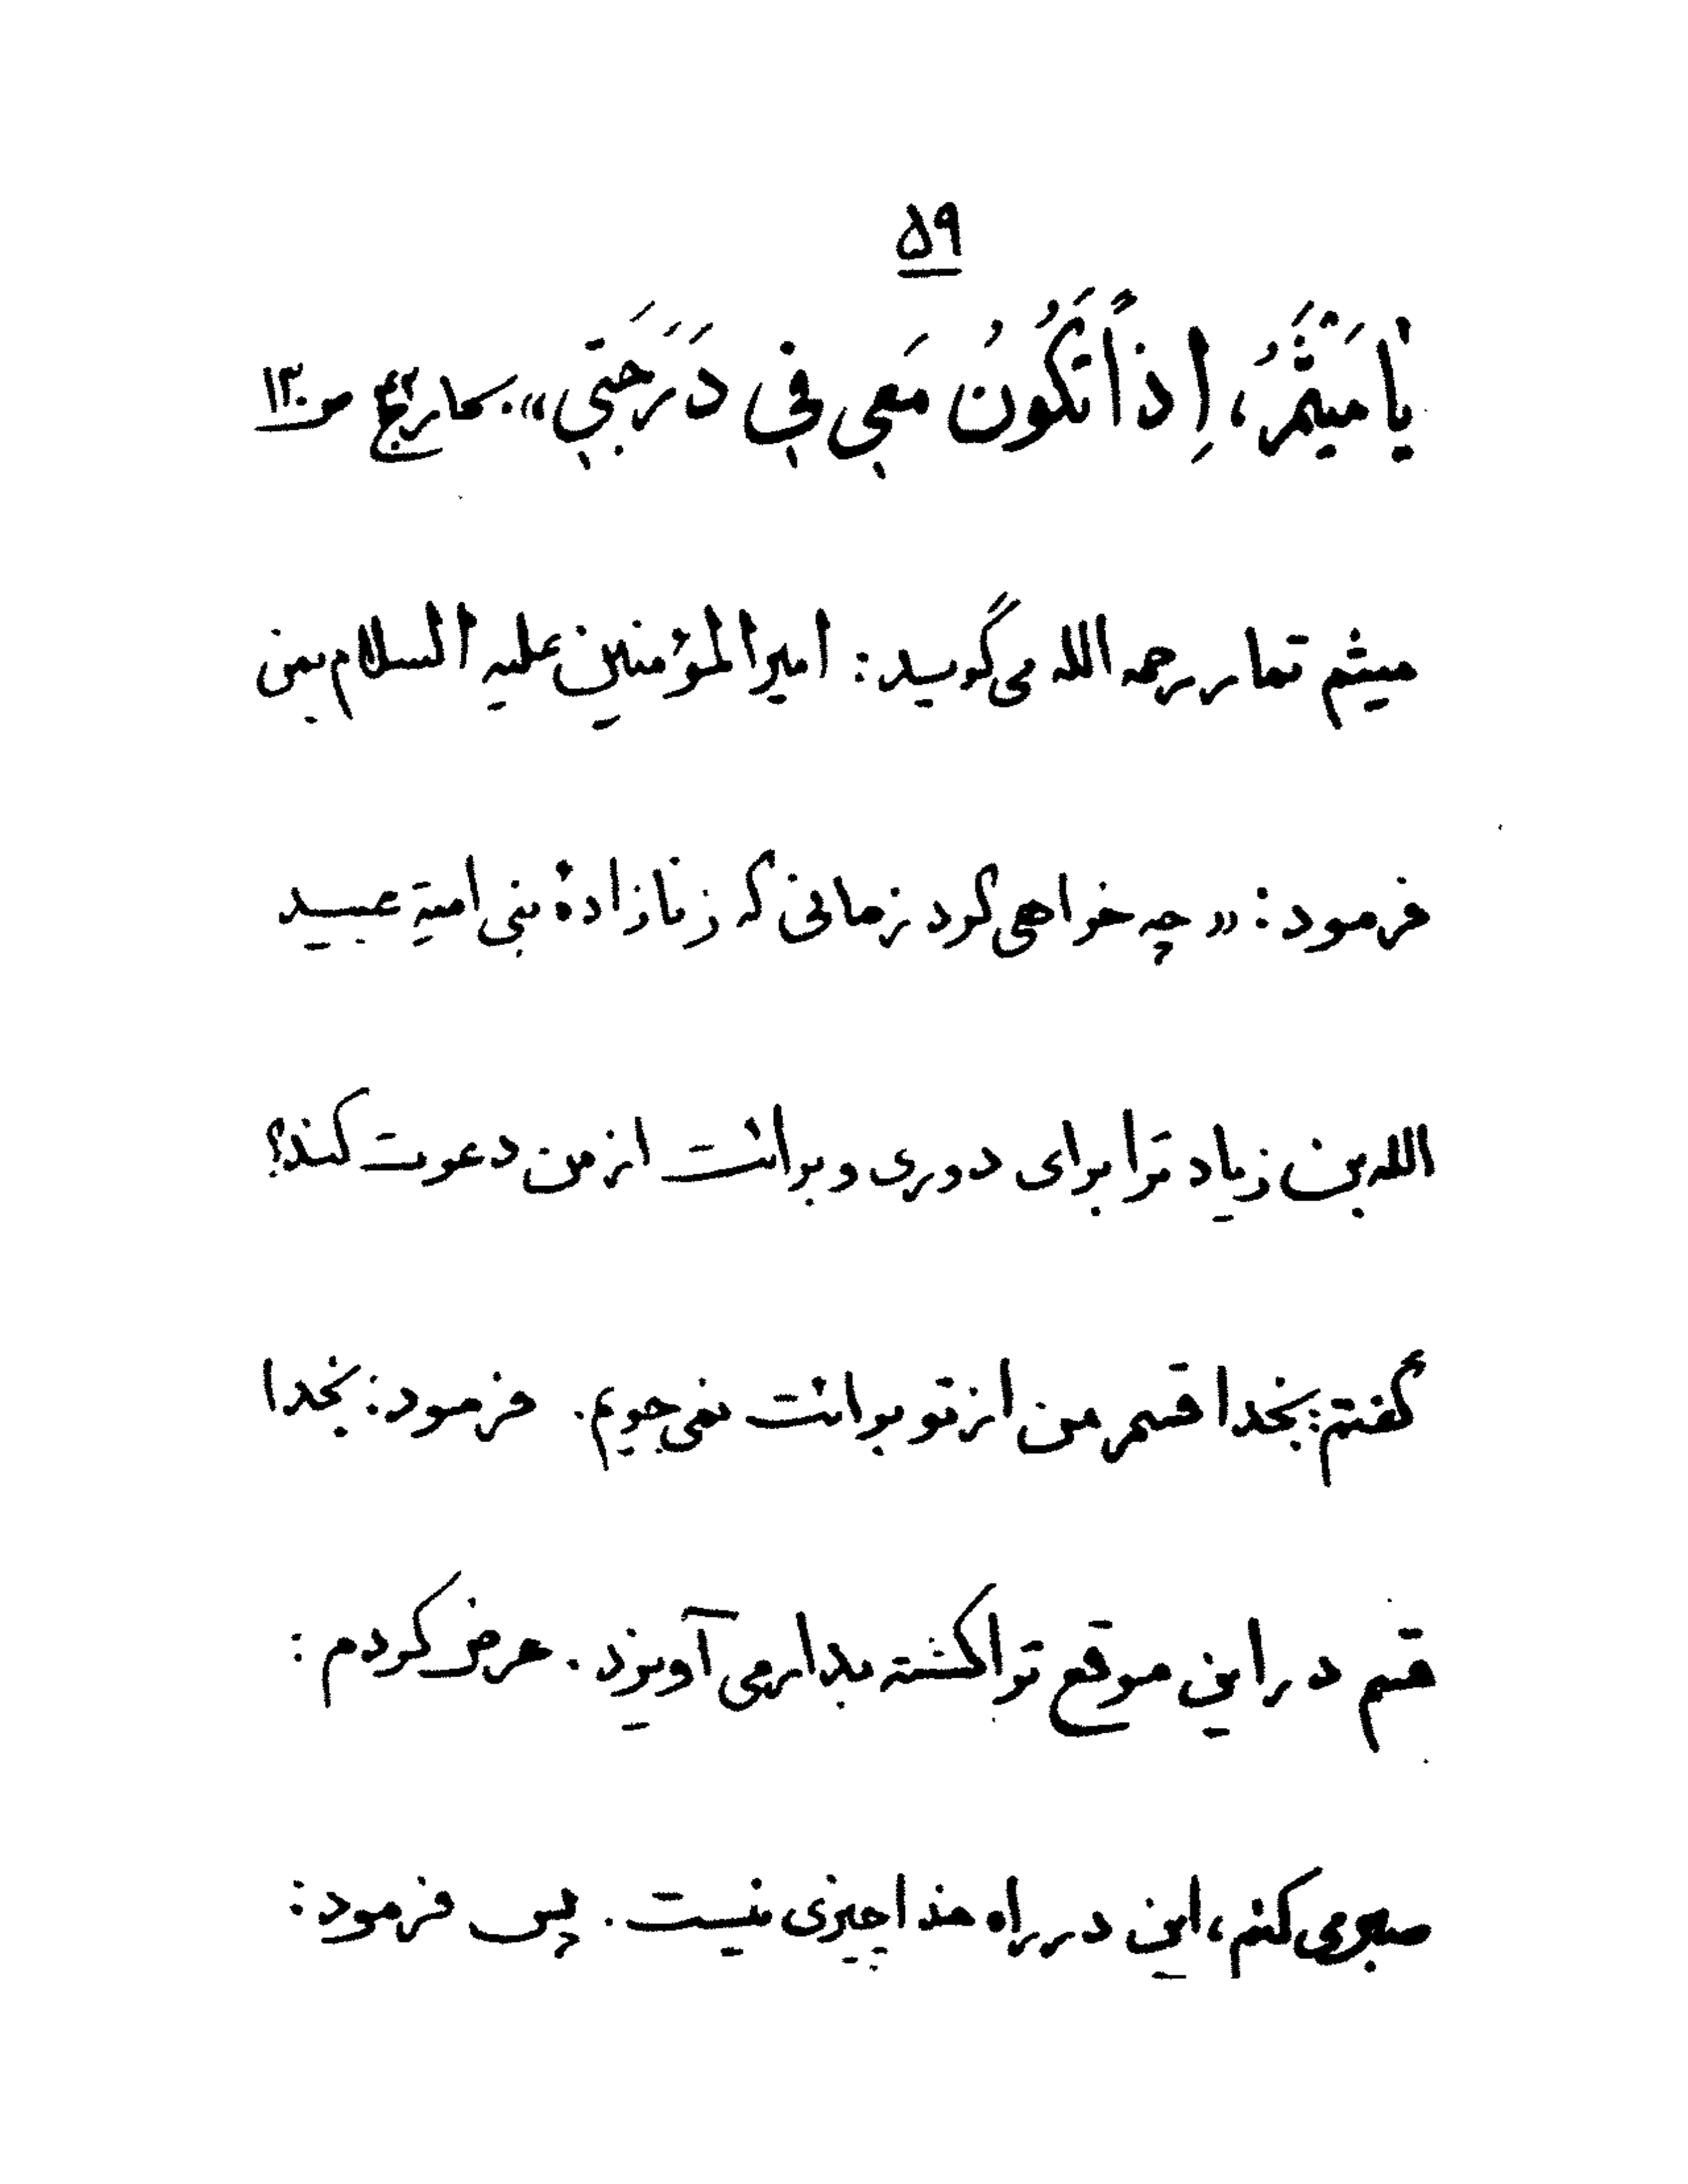 ۵۹
يَا مَيْثَمُ، اِذاً تَكُونُ مَعِي فِي دَرَجَتِي». بحار ج ۴۲ ص ۱۳۰
میثم تمار رحمه الله می گوید: امیرالمؤمنین علیه السلام بمن
فرمود: «چه خواهی کرد زمانی که زنازادهٔ بنی امیه عبید
الله بن زیاد ترا برای دوری و برائت از من دعوت کند؟
گفتم: بخدا قسم من از تو برائت نمی جویم. فرمود: بخدا
قسم در این موقع ترا کشته بدار می آویزد. عرض کردم:
صبر می کنم، این در راه خدا چیزی نیست. پس فرمود: